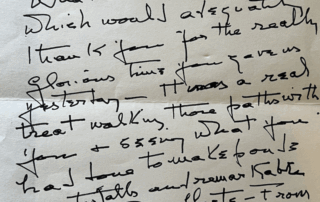 which would adequately
thank you for the really
glorious time you gave us
yesterday – It was a real
treat walking those paths with
you & seeing what you
had done to make ponds
falls and remarkable
from